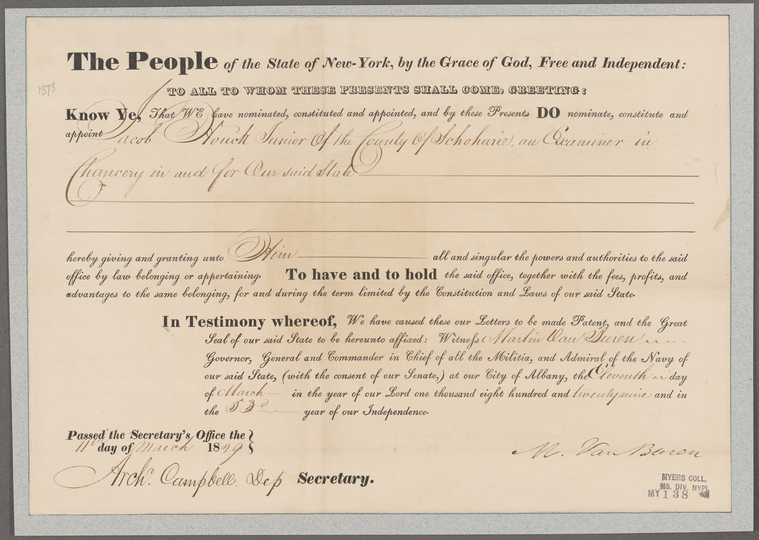 The People of the State of New-York, by the Grace of God, Free and Independent:
TO ALL TO WHOM THESE PRESENTS SHALL COME, GREETING:
1573
Know Ye, That WE have nominated, constituted and appointed, and by these Presents DO nominate, constitute and
appoint Jacob Houck Junior Of the County Of Schoharie, an Examiner in
Chancery in and for Our said State
hereby giving and granting unto Him all and singular the powers and authorities to the said
office by law belonging or appertaining. To have and to hold the said office, together with the fees, profits, and
advantages to the same belonging, for and during the term limited by the Constitution and Laws of our said State.
In Testimony whereof, We have caused these our Letters to be made Patent, and the Great
Seal of our said State to be hereunto affixed: Witness Martin Van Buren
Governor, General and Commander in Chief of all the Militia, and Admiral of the Navy of
our said State, (with the consent of our Senate,) at our City of Albany, the Eleventh day
of March in the year of our Lord one thousand eight hundred and twenty nine and in
the 53d year of our Independence.
Passed the Secretary's Office the }
11th day of March 1829 }
M. Van Buren
Archd. Campbell, Dep Secretary.
MYERS COLL.
MS. DIV. NYPL
MY 138